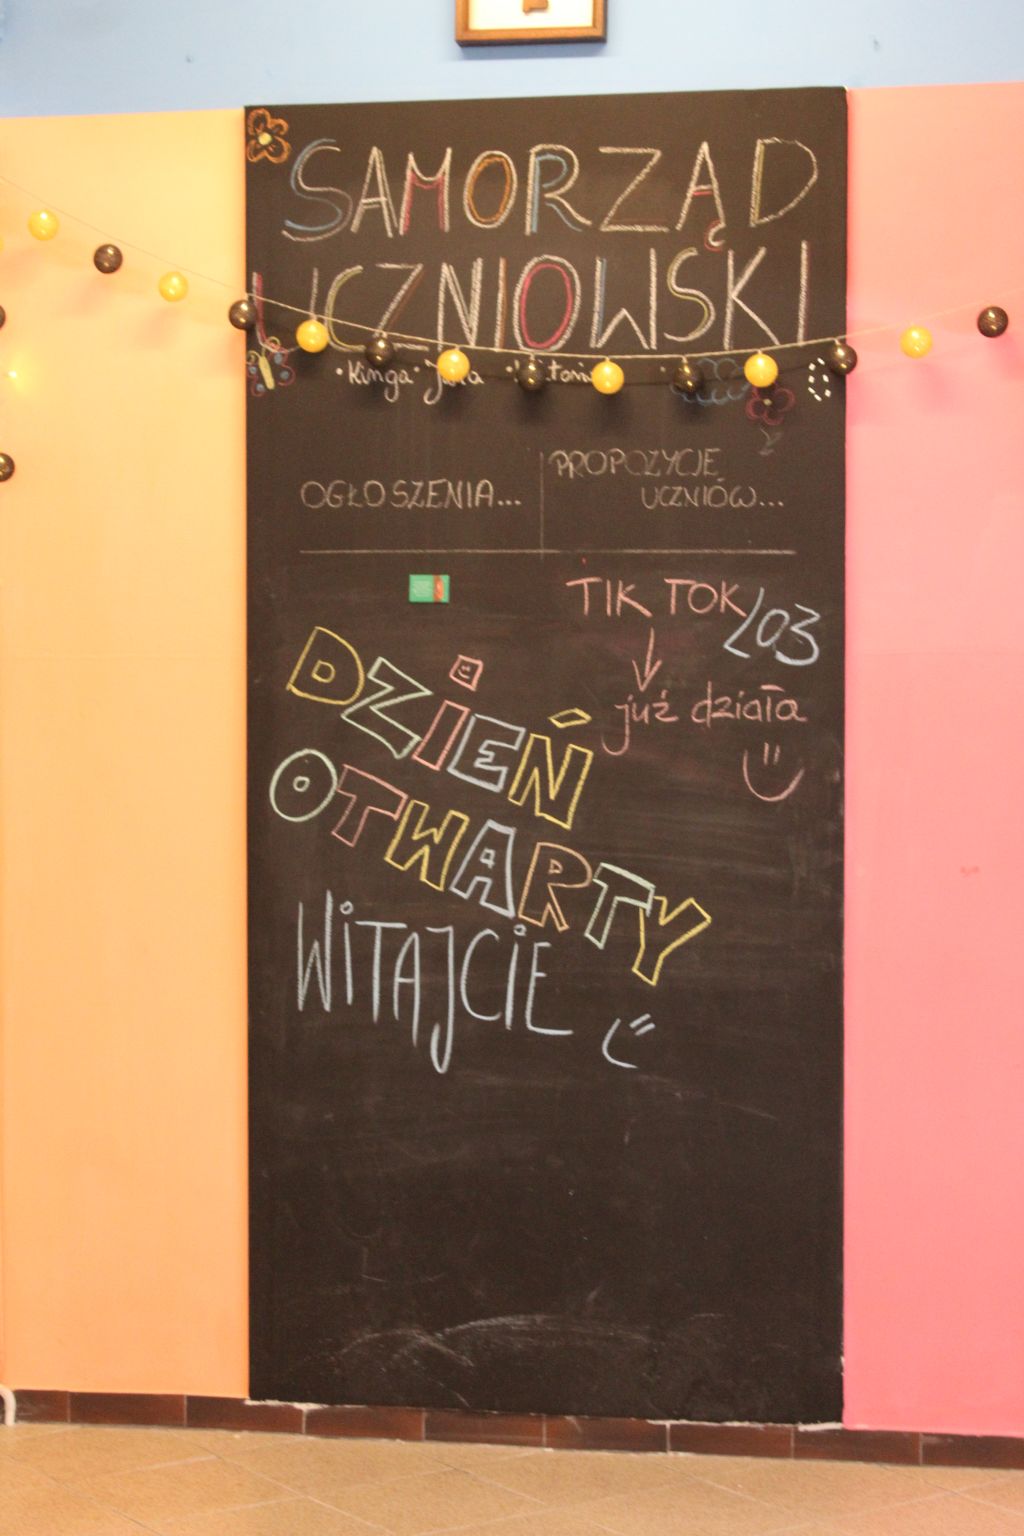 SAMORZĄD
UCZNIOWSKI
• Kinga •
OGŁOSZENIA...
PROPOZYCJE
UCZNIÓW...
TIK TOK
LO3
już działa
DZIEŃ
OTWARTY
WITAJCIE